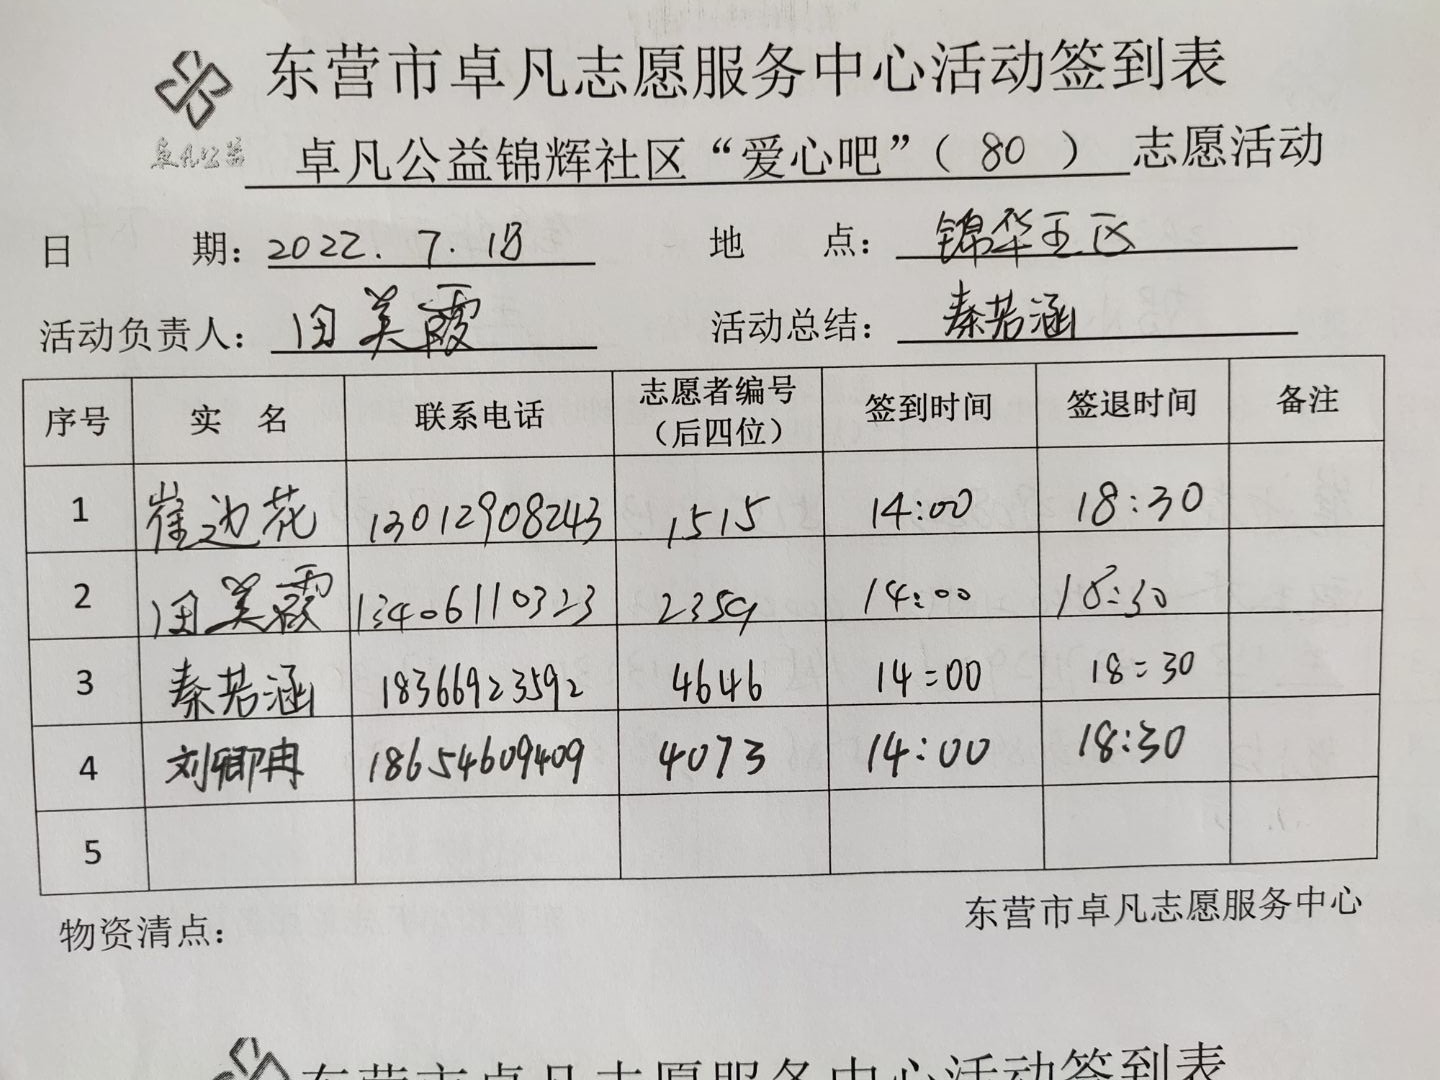 东营市卓凡志愿服务中心活动签到表
卓凡公益
卓凡公益锦辉社区“爱心吧”（ 80 ）志愿活动
日 期：2022.7.18 地 点：锦华五区
活动负责人：田美霞 活动总结：秦若涵
序号 实 名 联系电话 志愿者编号（后四位） 签到时间 签退时间 备注
1 崔边花 13012908243 1515 14:00 18:30
2 田美霞 13406110323 2359 14:00 18:30
3 秦若涵 18366923592 4646 14:00 18:30
4 刘卿冉 18654609409 4073 14:00 18:30
5
物资清点： 东营市卓凡志愿服务中心
东营市卓凡志愿服务中心活动签到表